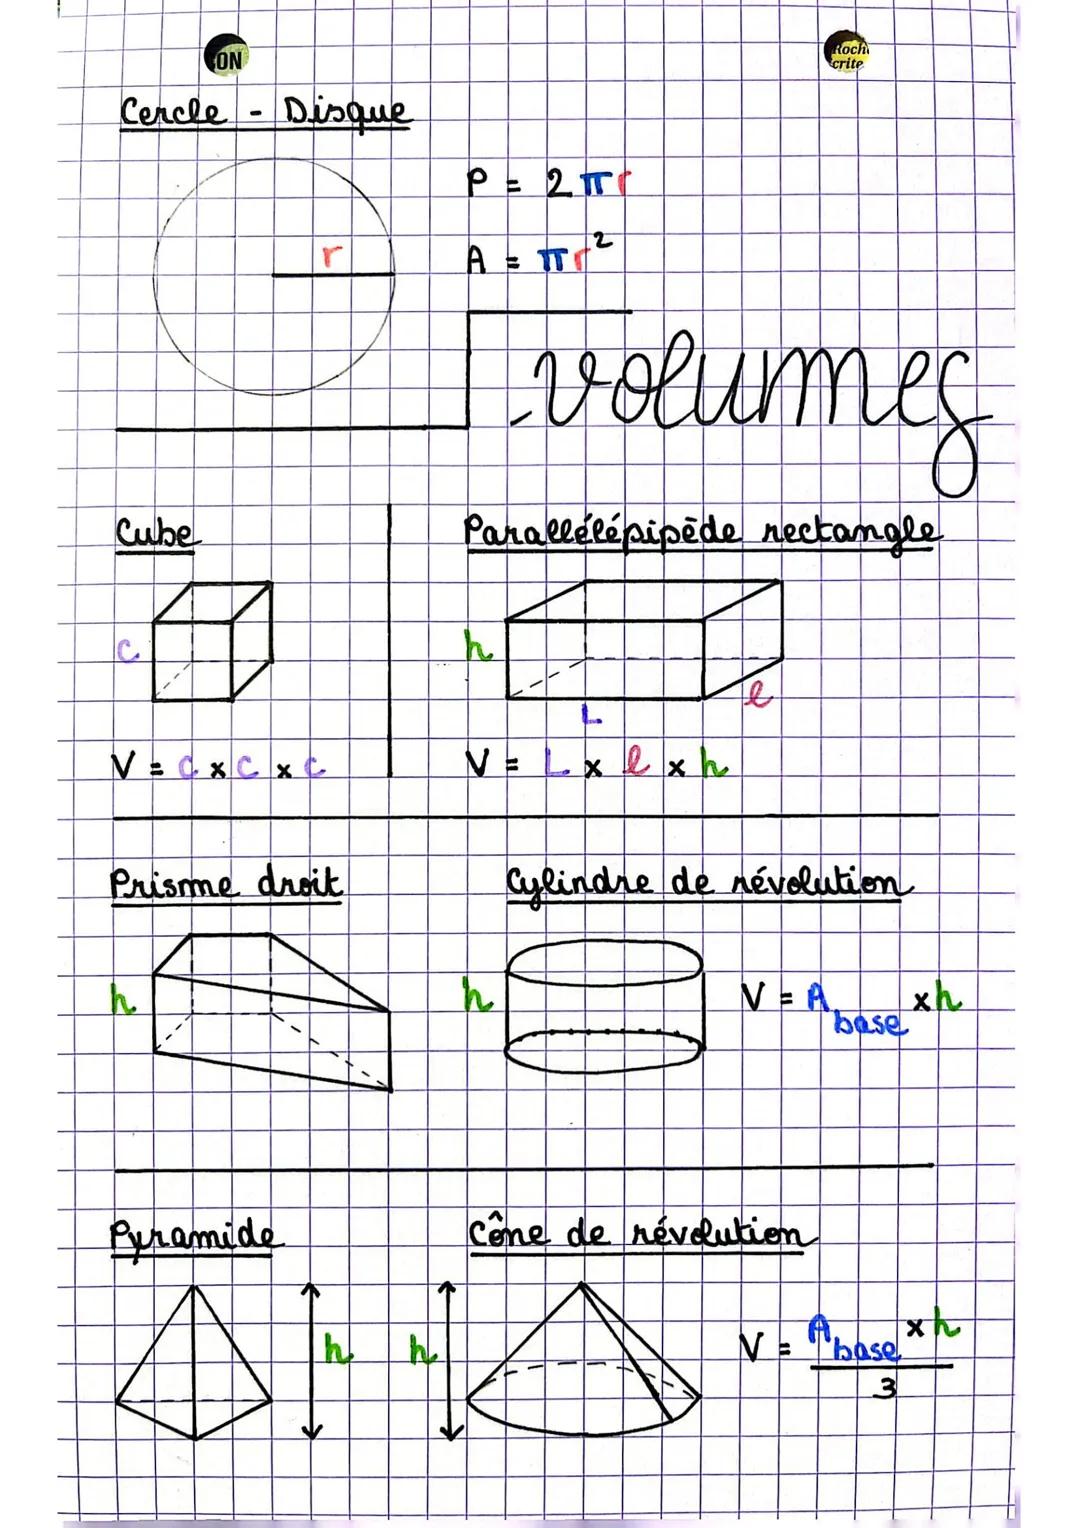 ON
Roch
crite
Cercle - Disque
P = 2πr
r
A = πr²
volumes
Cube
Parallélépipède rectangle
c
h
l
L
V = c x c x c
V = L x l x h
Prisme droit
Cylindre de révolution
h
h
V = A base x h
Pyramide
Cône de révolution
h
h
V = A base x h
3